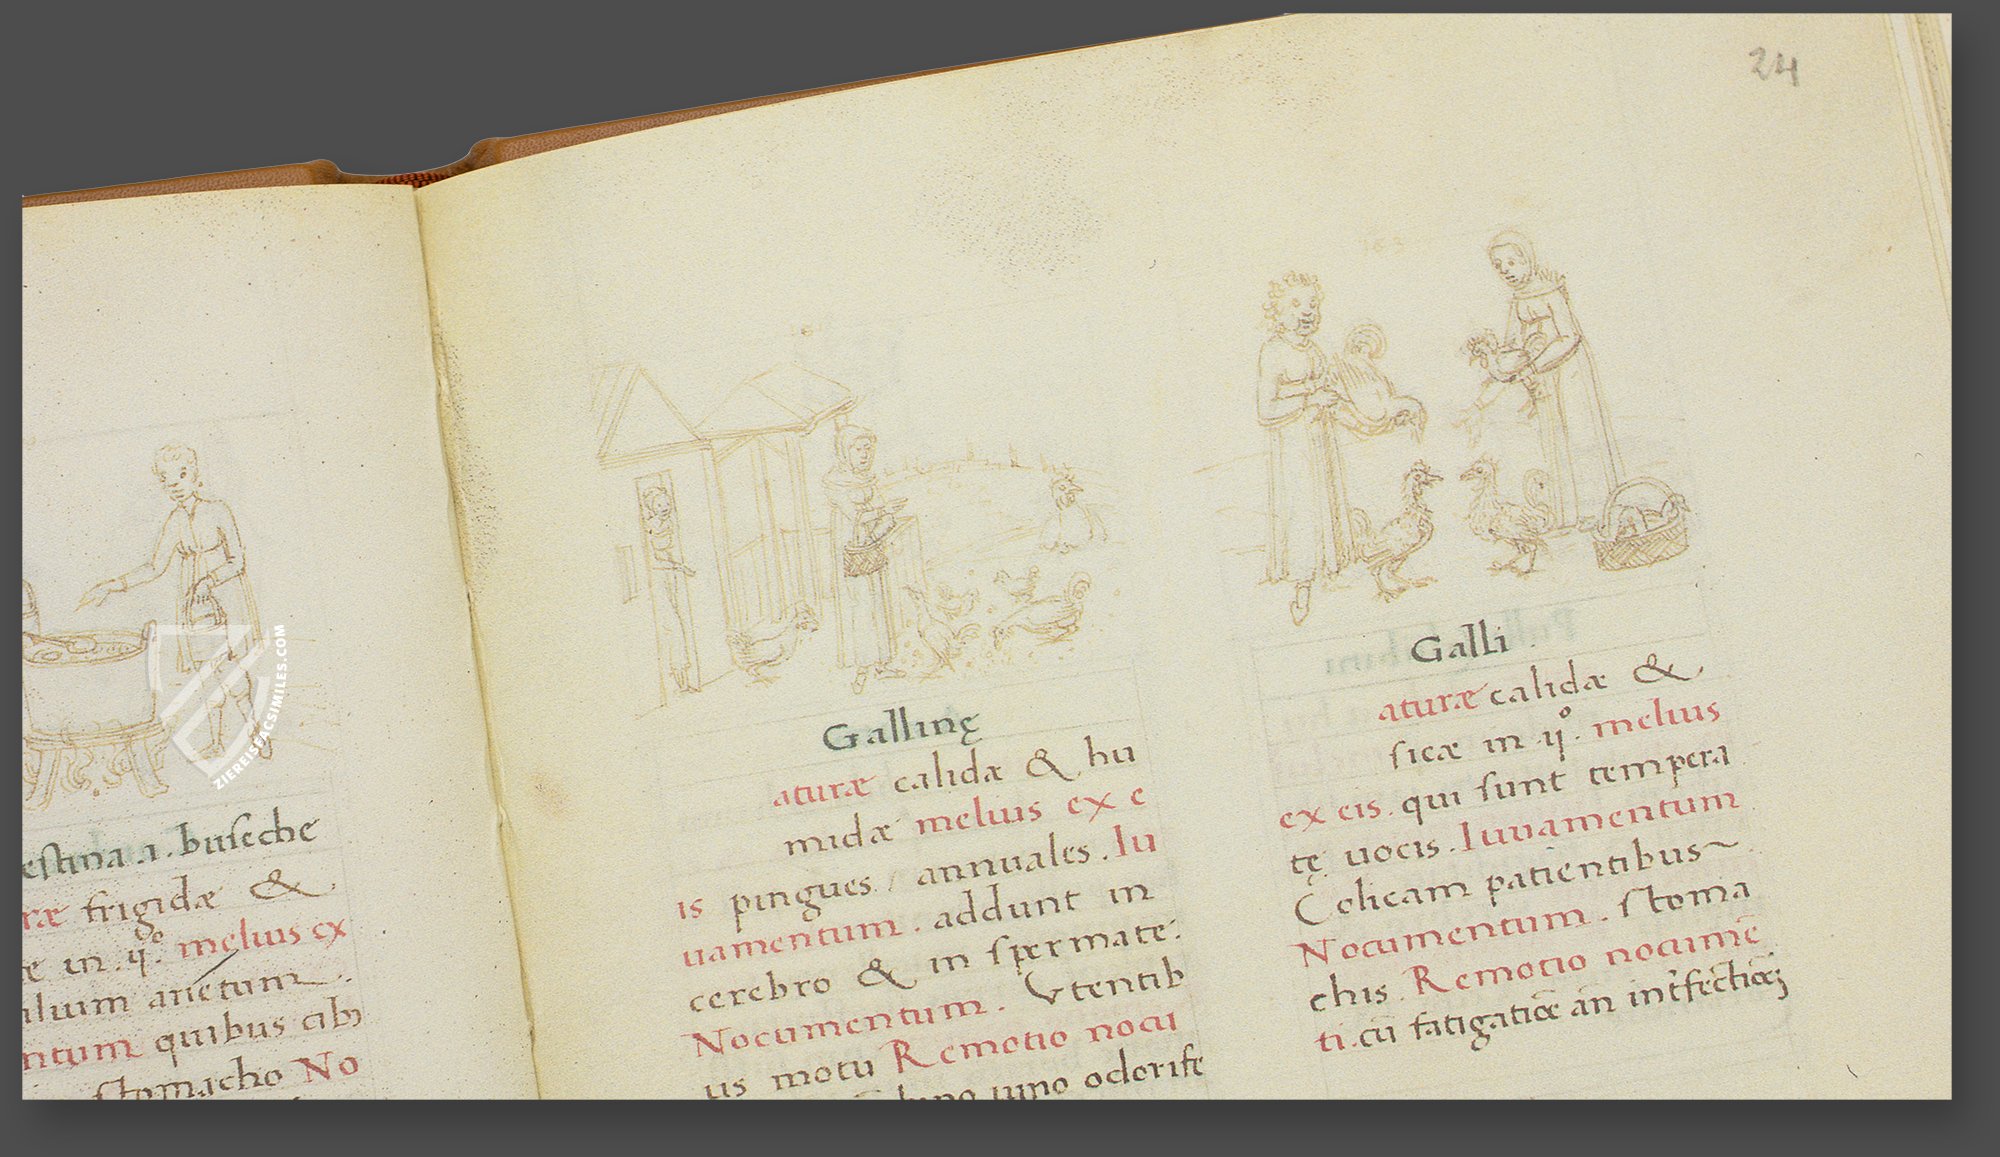 24
estina.i.buseche
ræ frigidæ &.
in.ij°. melius ex
arietum.
ntum quibus cib
stomacho No
ZIEREISFACSIMILES.COM
Gallinę
aturæ calidæ & hu
midæ melius ex e
is pingues / annuales. Iu
uamentum. addunt in
cerebro & in spermate.
Nocumentum. Vtentib
us motu Remotio nocu
uino odorife
Galli
aturæ calidæ &.
sicæ in.ij°. melius
ex eis. qui sunt tempera
tę uocis. Iuuamentum
Colicam patientibus~
Nocumentum. stoma
chis. Remotio nocumē
ti.cū fatigatiōe